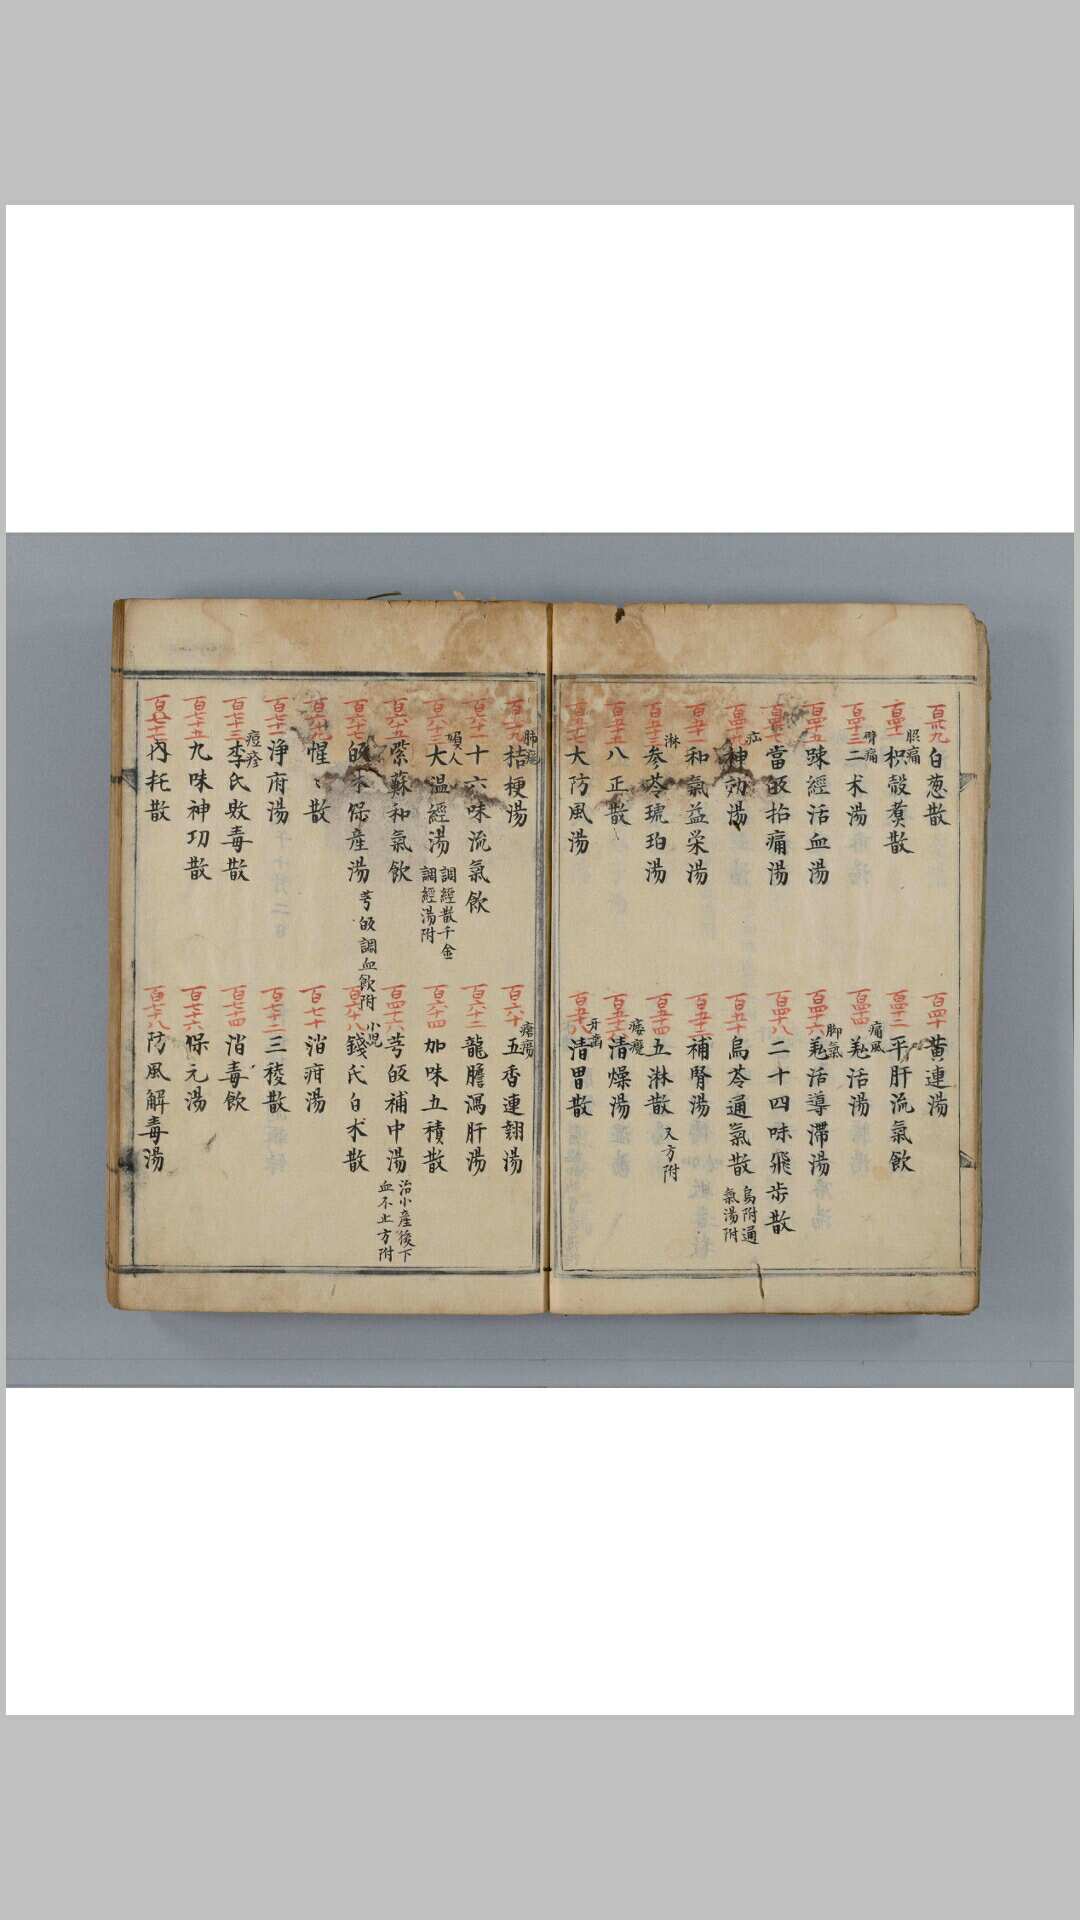 百卅九 白葱散
百四十 黄連湯
脇痛
百四十一 枳殻煮散
百四十二 平肝流氣飲
臂痛
百四十三 二朮湯
痛風
百四十四 羗活湯
百四十五 踈經活血湯
脚氣
百四十六 羗活導滞湯
百四十七 當皈拈痛湯
百四十八 二十四味飛歩散
疝
百四十九 神効湯
百五十 烏苓通氣散 烏附通氣湯附
百五十一 和氣益栄湯
百五十二 補腎湯
淋
百五十三 参苓琥珀湯
百五十四 五淋散 又方附
百五十五 八正散
痿癈
百五十六 清燥湯
百五十七 大防風湯
牙歯
百五十八 清胃散
肺癰
百五十九 桔梗湯
瘡瘍
百六十 五香連翹湯
百六十一 十六味流氣飲
百六十二 龍膽瀉肝湯
婦人
百六十三 大温經湯 調經散千金調經湯附
百六十四 加味五積散
百六十五 紫蘇和氣飲
百四十六 芎皈補中湯 治小産後下血不止方附
百六十七 皈朮保産湯 芎皈調血飲附
小児
百六十八 錢氏白朮散
百六十九 惺〻散
百七十 消疳湯
百七十一 浄府湯
百七十二 三稜散
痘疹
百七十三 李氏敗毒散
百七十四 消毒飲
百七十五 九味神功散
百七十六 保元湯
百七十七 内托散
百七十八 防風解毒湯